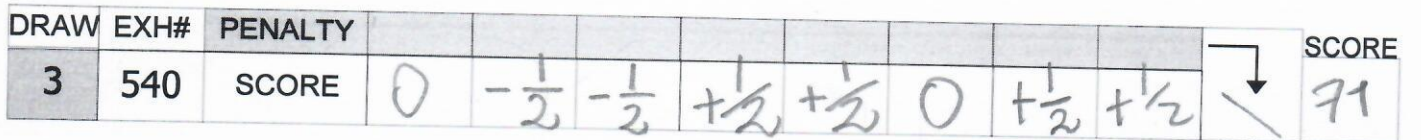 DRAW EXH# PENALTY SCORE
3 540 SCORE 0 -1/2 -1/2 +1/2 +1/2 0 +1/2 +1/2 \ 71